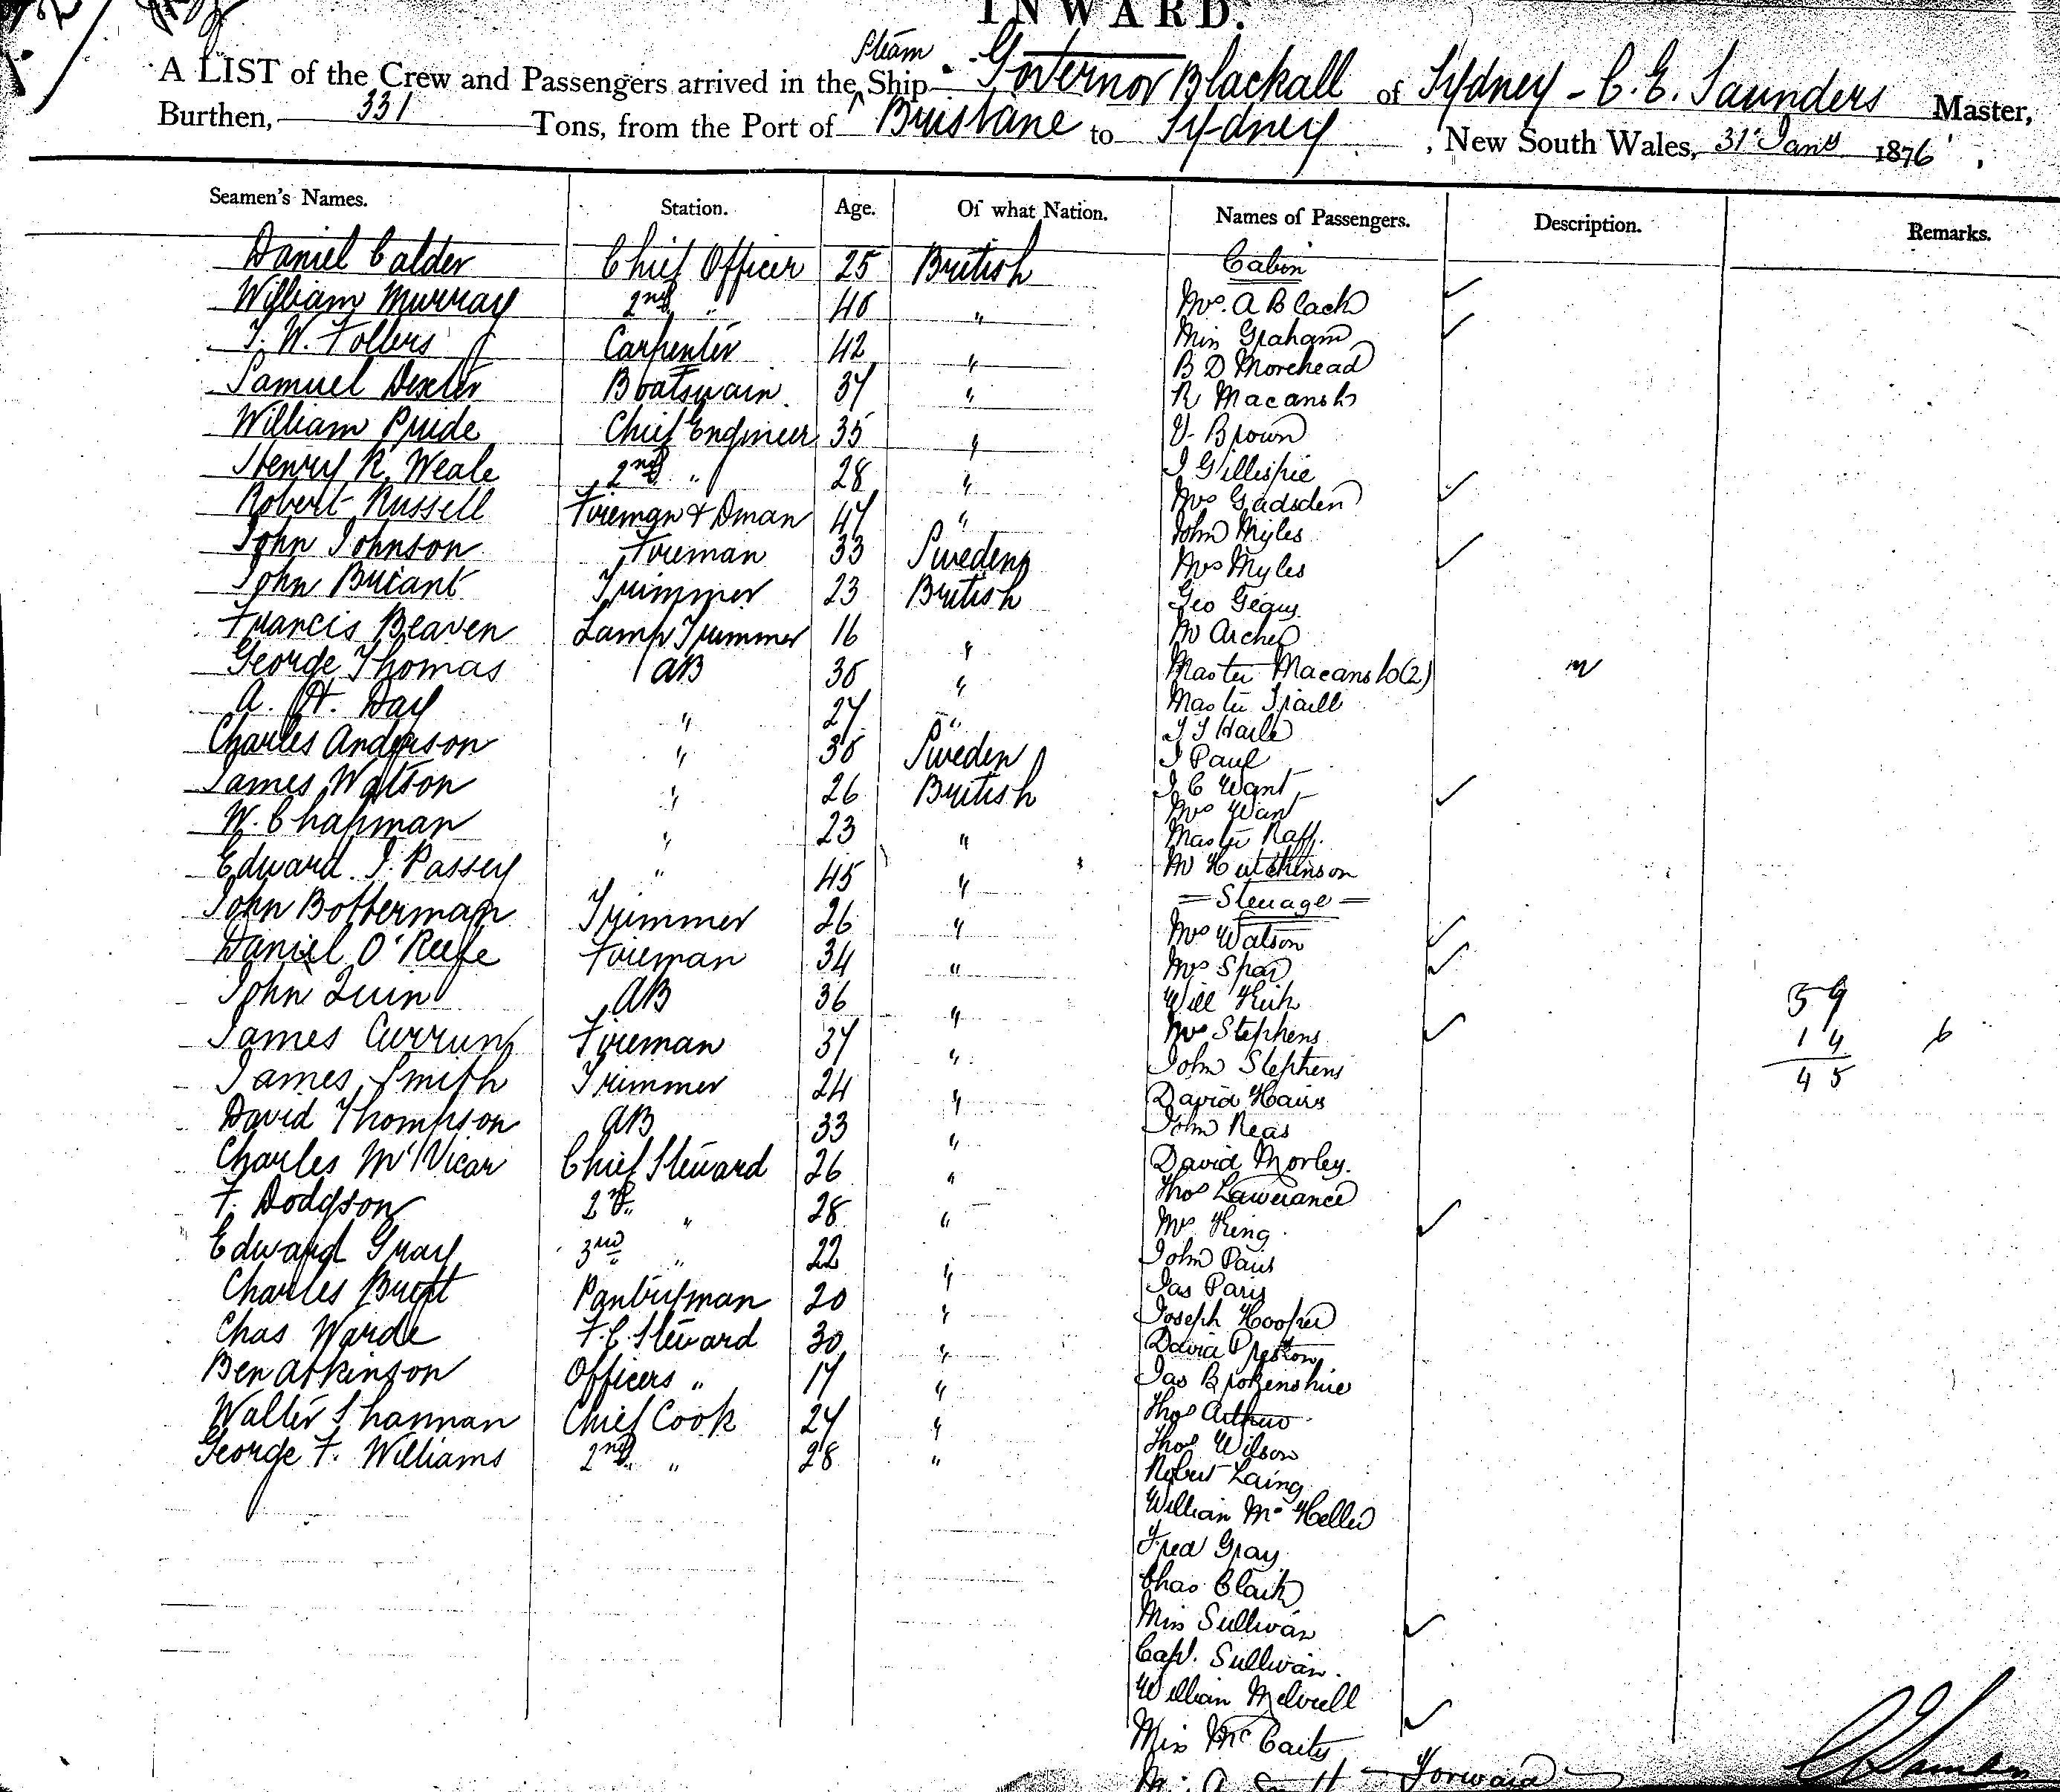 INWARD.
Steam
A LIST of the Crew and Passengers arrived in the Ship Governor Blackall of Sydney - C. E. Saunders Master,
Burthen, 331 Tons, from the Port of Brisbane to Sydney, New South Wales, 31st Jany 1876,
Seamen's Names. Station. Age. Of what Nation. Names of Passengers. Description. Remarks.
Daniel Calder Chief Officer 25 British Cabin
William Murray 2nd " 40 " Mrs. A Black ✓
J. W. Follers Carpenter 42 " Miss Graham ✓
Samuel Dexter Boatswain 37 " B D Morehead
William Pride Chief Engineer 35 " R Macansh
Henry R. Weale 2nd " 28 " Brown
Robert Russell Fireman & Dman 47 " J Gillespie
John Johnson Fireman 33 Sweden Mrs Gadsden ✓
John Briant Trimmer 23 British John Myles
Francis Beaven Lamp Trimmer 16 " Mrs Myles ✓
George Thomas AB 30 " Geo
A. H. Day " 27 " Archer
Charles Anderson " 30 Sweden Master Macansh (2) m
James Watson " 26 British Master Traill
W. Chapman " 23 " Haile
Edward J. Passey " 45 " J Paul
John Botterman Trimmer 26 " J C Want
Daniel O'Keefe Fireman 34 " Mrs Want ✓
John Quin AB 36 " Master Raff.
James Curran Fireman 37 " Hutchinson
James Smith Trimmer 24 " = Steerage =
David Thompson AB 33 " Mrs Watson ✓
Charles McVicar Chief Steward 26 " Mrs ✓
F. Dodgson 2nd " 28 " Will
Edward Gray 3rd " 22 " Mrs Stephens ✓
Charles Brett Pantryman 20 " John Stephens
Chas Warde F. C. Steward 30 " David
Ben Atkinson Officers " 17 " John Reas
Walter Shannan Chief Cook 27 " David Morley.
George F. Williams 2nd " 28 " Thos Lawerance
Mrs King ✓
John Paris
Jas Paris
Joseph Hooper
David Preston
Jas Brokenshire
Thos Arthur
Thos Wilson
Robert Laing
William Mc
Fred Gray
Chas Clark
Miss Sullivan ✓
Capt. Sullivan.
William
Miss McCarty ✓
Forward
59
14
45